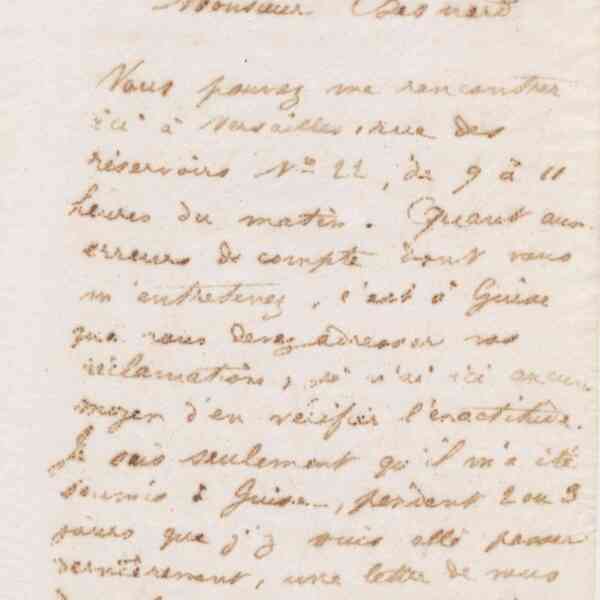 Monsieur Besnard
Vous pouvez me rencontrer
ici à Versailles, rue des
réservoirs No 22, de 9 à 11
heures du matin. Quant aux
erreurs de compte dont vous
m'entretenez, c'est à Guise
que vous devez adresser vos
réclamations, je n'ai ici aucun
moyen d'en vérifier l'exactitude.
Je sais seulement qu'il m'a été
soumis à Guise, pendant 2 ou 3
jours que j'y suis allé passer
dernièrement, une lettre de vous